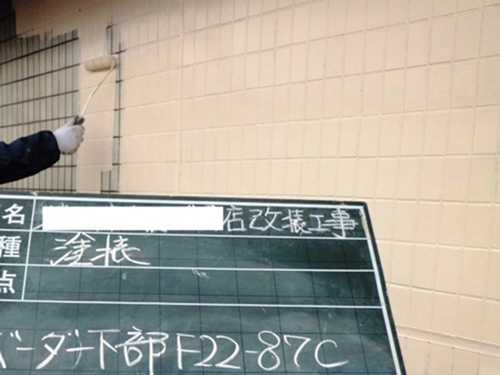 名 店改装工事
種 塗装
点
ボーダー下部F22-87C